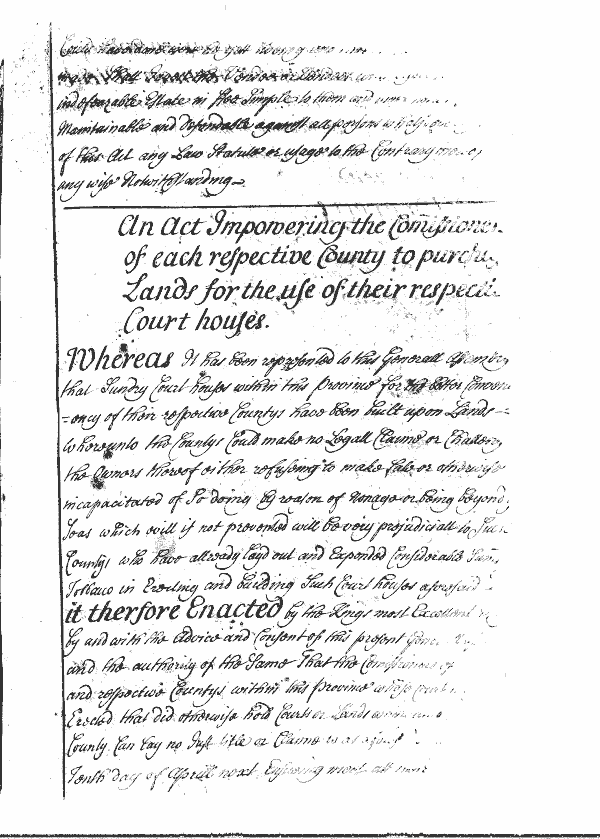 Could have done were
Shall
indefeazable Estate in Fee Simple to them and
Maintainable and Defendable against all persons
of this Act any Law Statute or usage to the Contrary
any wise Notwithstanding
An Act Impowering the Com̄issioner
of each respective County to purch
Lands for the use of their respecti
Court houses.
Whereas It has been represented to this Generall Assembly
that Sundry Court houses within this Province for the better Conveni
=ency of their respective Countys have been built upon Lands
whereunto the Countys Could make no Legall Claime or Challeng
the Owners thereof either refuseing to make Sale or otherwise
incapacitated of So doing by reason of Nonage or being beyond
Seas which evill if not prevented will be very prejudiciall to Such
Countys who have allready layd out and Expended Considerable Sum
Tobacco in Erecting and building Such Court houses aforesaid
it therfore Enacted by the Kings most Excellent
by and with the advice and Consent of this present Gene
and the authority of the Same That the Comissioners of
and respective Countys within this Province whose Court
Erected that did otherwise hold Courts on Lands
County Can Lay no Just title or Claime to
Tenth day of Aprill next Ensueing meet att